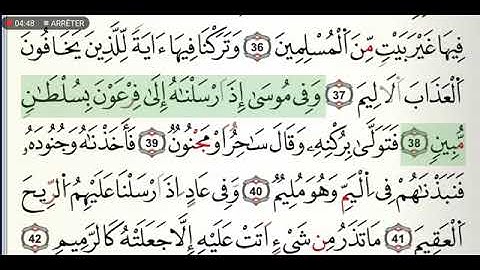 04:48 ARRÊTER
فِيهَا غَيْرَ بَيْتٍ مِّنَ اَ۬لْمُسْلِمِينَ 36 وَتَرَكْنَا فِيهَا ءَايَةً لِّلَّذِينَ يَخَافُونَ
اَ۬لْعَذَابَ اَ۬لَالِيمَ 37 وَفِي مُوسَىٰ إِذَ اَرْسَلْنَٰهُ إِلَىٰ فِرْعَوْنَ بِسُلْطَٰنٍ
مُّبِينٍ 38 فَتَوَلَّىٰ بِرُكْنِهِۦ وَقَالَ سَٰحِرٌ اَوْ مَجْنُونٌ 39 فَأَخَذْنَٰهُ وَجُنُودَهُۥ
فَنَبَذْنَٰهُمْ فِي اِ۬لْيَمِّ وَهُوَ مُلِيمٌ 40 وَفِي عَادٍ اِذَ اَرْسَلْنَا عَلَيْهِمُ اُ۬لرِّيحَ
اَ۬لْعَقِيمَ 41 مَا تَذَرُ مِن شَيْءٍ اَتَتْ عَلَيْهِ إِلَّا جَعَلَتْهُ كَالرَّمِيمِ 42